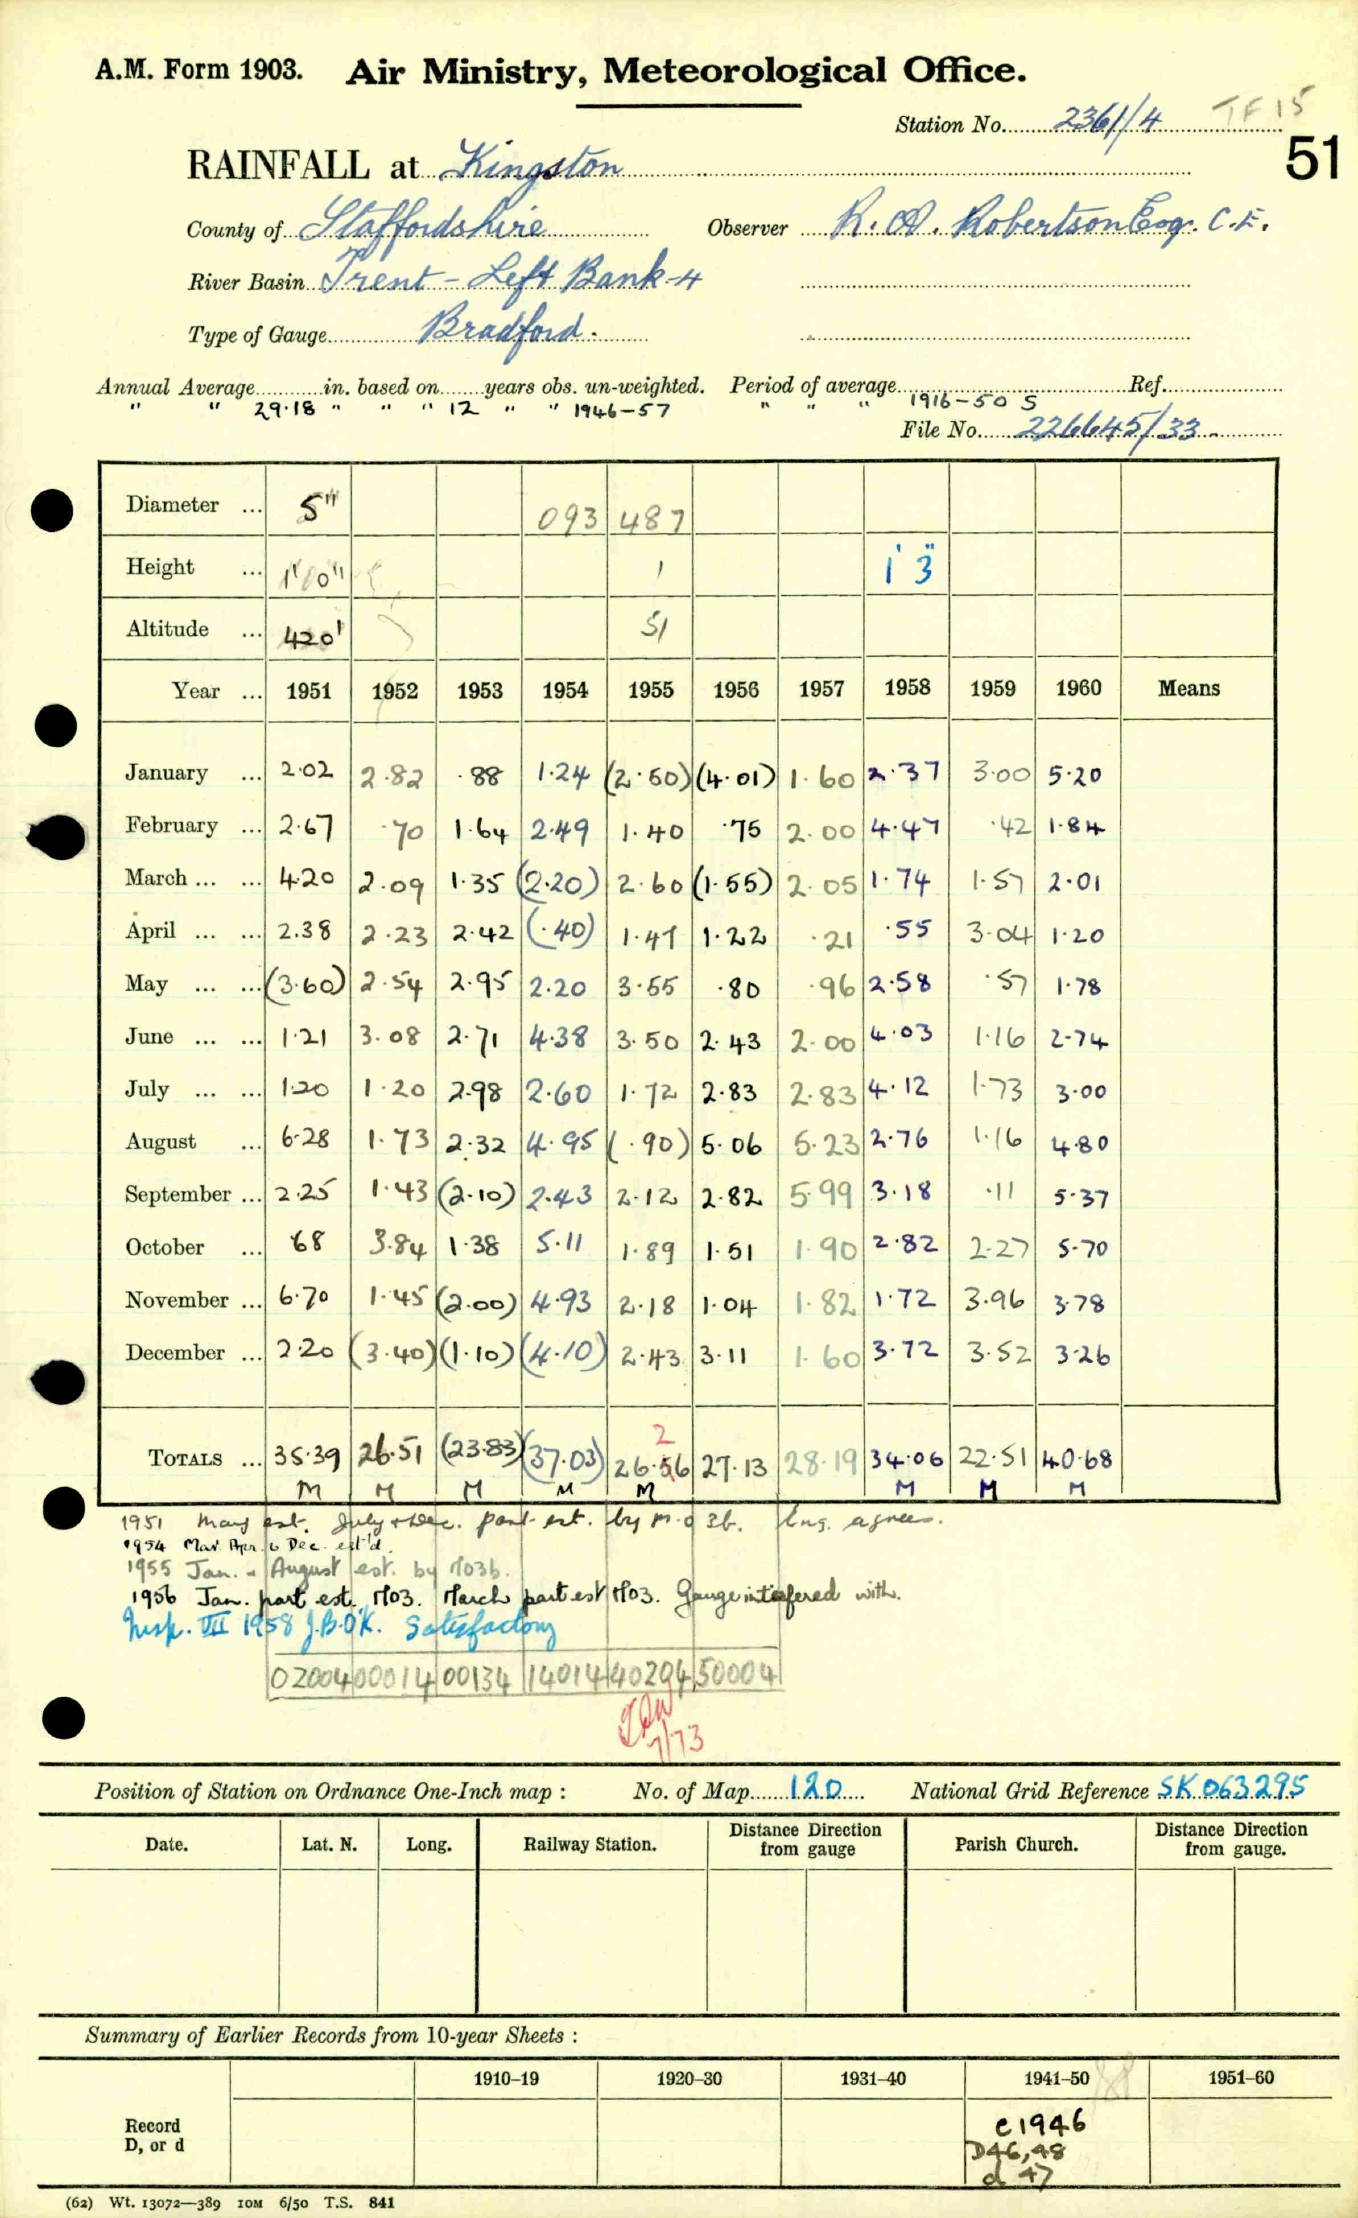 A.M. Form 1903. Air Ministry, Meteorological Office.
Station No. 2361/4 TF 15
51
RAINFALL at Kingston
County of Staffordshire Observer R. A. Robertson Esq. C.E.
River Basin Trent - Left Bank-4
Type of Gauge Bradford.
Annual Average in. based on years obs. un-weighted. Period of average Ref.
" " 29.18 " " " 12 " " 1946-57 " " " 1916-50 S
File No. 226645/33
Diameter ... 5" 093 487
Height ... 1'0" 1 1' 3"
Altitude ... 420' 51
Year ... 1951 1952 1953 1954 1955 1956 1957 1958 1959 1960 Means
January ... 2.02 2.82 .88 1.24 (2.50) (4.01) 1.60 2.37 3.00 5.20
February ... 2.67 .70 1.64 2.49 1.40 .75 2.00 4.47 .42 1.84
March ... ... 4.20 2.09 1.35 (2.20) 2.60 (1.55) 2.05 1.74 1.57 2.01
April ... ... 2.38 2.23 2.42 (.40) 1.47 1.22 .21 .55 3.04 1.20
May ... ... (3.60) 2.54 2.95 2.20 3.55 .80 .96 2.58 .57 1.78
June ... ... 1.21 3.08 2.71 4.38 3.50 2.43 2.00 4.03 1.16 2.74
July ... ... 1.20 1.20 2.98 2.60 1.72 2.83 2.83 4.12 1.73 3.00
August ... 6.28 1.73 2.32 4.95 (.90) 5.06 5.23 2.76 1.16 4.80
September ... 2.25 1.43 (2.10) 2.43 2.12 2.82 5.99 3.18 .11 5.37
October ... 68 3.84 1.38 5.11 1.89 1.51 1.90 2.82 2.27 5.70
November ... 6.70 1.45 (2.00) 4.93 2.18 1.04 1.82 1.72 3.96 3.78
December ... 2.20 (3.40) (1.10) (4.10) 2.43 3.11 1.60 3.72 3.52 3.26
2
TOTALS ... 35.39 26.51 (23.83) (37.03) 26.56 27.13 28.19 34.06 22.51 40.68
M M M M M M M M
1951 May est. July & Dec. part est. by M.O 3b. Eng. agrees.
1954 Mar. Apr. & Dec. est'd.
1955 Jan. & August est. by M03b.
1956 Jan. part est. M03. March part est M03. Gauge interfered with.
Insp. VII 1958 J.B.O'K. Satisfactory
02004 00014 00134 14014 40204 50004
7/73
Position of Station on Ordnance One-Inch map : No. of Map 120 National Grid Reference SK 063295
Date. Lat. N. Long. Railway Station. Distance from Direction gauge Parish Church. Distance from Direction gauge.
Summary of Earlier Records from 10-year Sheets :
1910-19 1920-30 1931-40 1941-50 1951-60
Record
D, or d
c1946
D46,48
d 47
(62) Wt. 13072—389 10M 6/50 T.S. 841